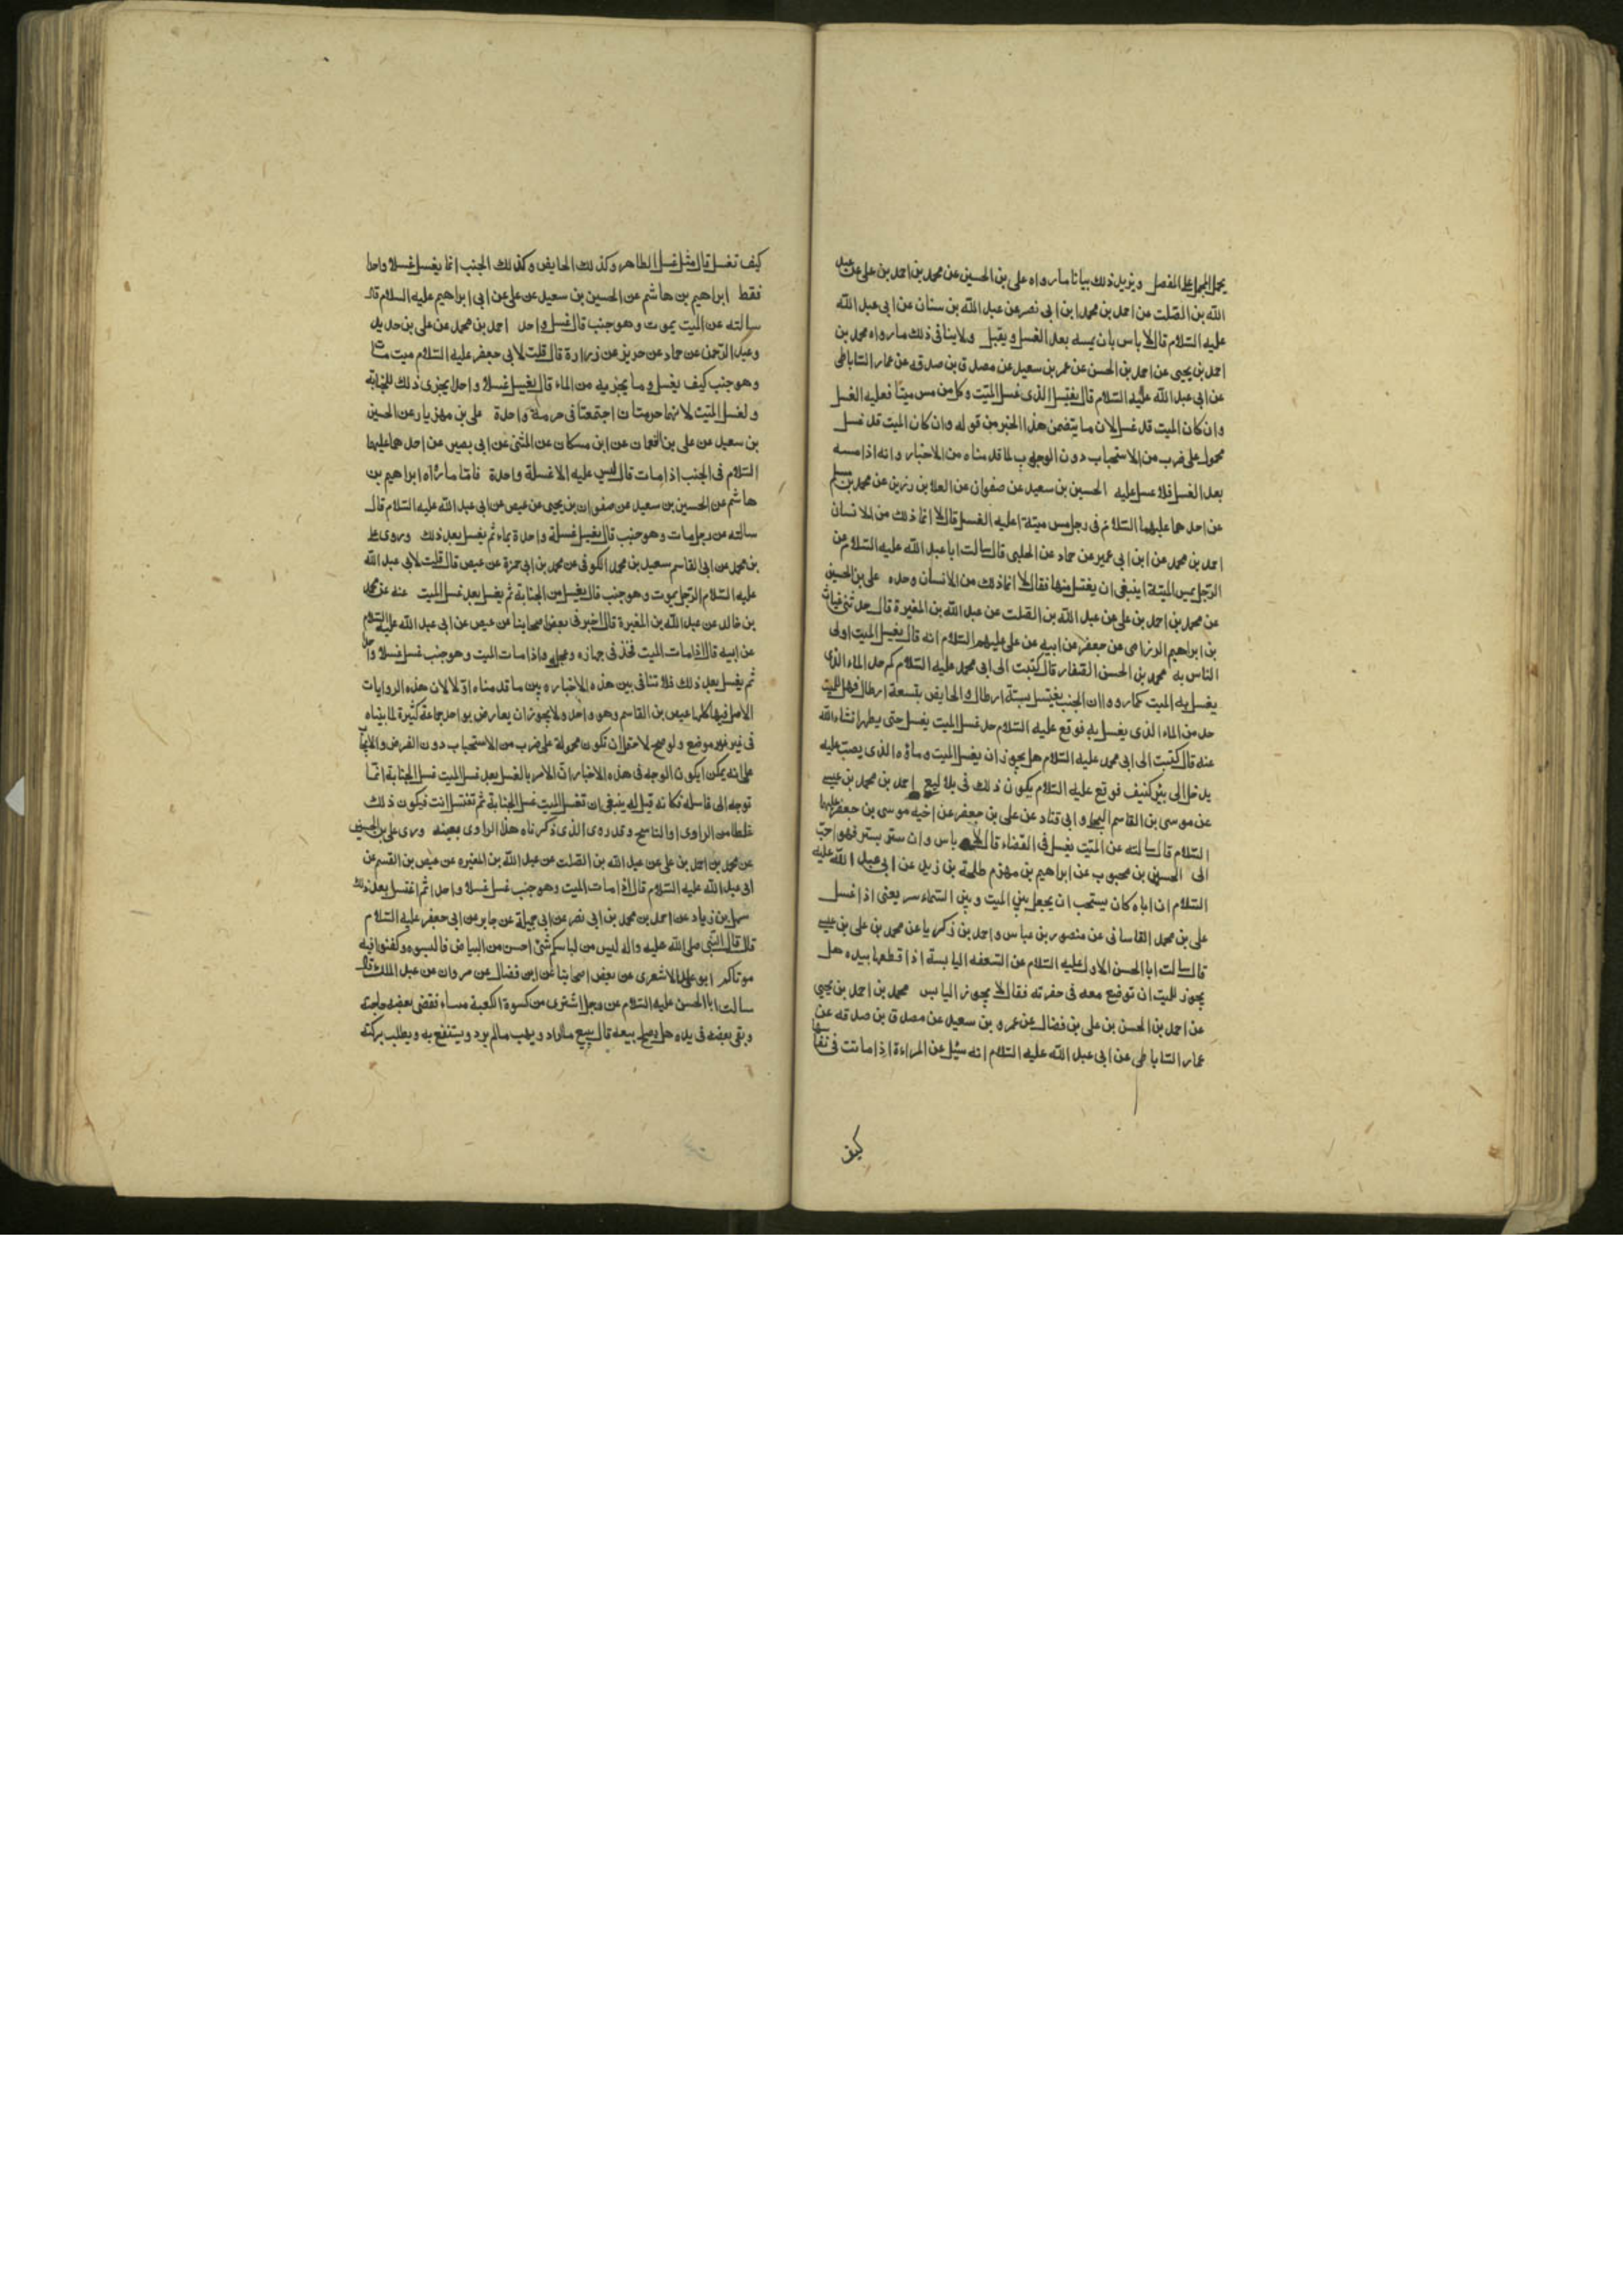 يحمل المجمل على المفصل ويزيد ذلك بيانا ما رواه على بن الحسين عن محمد بن احمد بن على عن عبد
الله بن الصلت عن احمد بن محمد ابن ابى نصر عن عبد الله بن سنان عن ابى عبد الله
عليه السّلام قال لا باس بان يمسه بعد الغسل ويقبل ولا ينافى ذلك ما رواه محمد بن
احمد بن يحيى عن احمد بن الحسن عن عمر بن سعيد عن مصدق بن صدقه عن عمار الساباطى
عن ابى عبد الله عليه السّلام قال يغتسل الذى غسل الميّت وكل من مس ميتا فعليه الغسل
وان كان الميت قد غسل لان ما يتضمن هذا الخبر من قوله وان كان الميت قد غسل
محمول على ضرب من الاستحباب دون الوجوب لما قدمناه من الاخبار وانه اذا مسه
بعد الغسل فلا غسل عليه الحسين بن سعيد عن صفوان عن العلا بن رزين عن محمد بن مسلم
عن احدهما عليهما السّلام فى رجل مس ميتة اعليه الغسل قال لا انما ذلك من الانسان
احمد بن محمد عن ابن ابى عمير عن حماد عن الحلبى قال سالت ابا عبد الله عليه السّلام عن
الرّجل يمس الميتة اينبغى ان يغتسل منها فقال لا انما ذلك من الانسان وحده على بن الحسين
عن محمد بن احمد بن على عن عبد الله بن الصلت عن عبد الله بن المغيرة قال حدثنى غياث
بن ابراهيم الرزامى عن جعفر عن ابيه عن على عليهم السّلام انه قال يغسل الميت اولى
الناس به محمد بن الحسن الصفار قال كتبت الى ابى محمد عليه السّلام كم حد الماء الذى
يغسل به الميت كما رووا ان الجنب يغتسل بستة ارطال والحايض بتسعة ارطال فهل للميت
حد من الماء الذى يغسل به فوقع عليه السّلام حد غسل الميت يغسل حتى يطهر انشاء الله
عنه قال كتبت الى ابى محمد عليه السّلام هل يجوز ان يغسل الميت وماؤه الذى يصبّ عليه
يدخل الى بئر كنيف فوقع عليه السّلام يكون ذلك فى بلاليع احمد بن محمد بن عيسى
عن موسى بن القاسم البجلى وابى قتاد عن على بن جعفر عن اخيه موسى بن جعفر عليهما
السّلام قال سالته عن الميّت يغسل فى الفضاء قال لا باس وان ستر بستر فهو احبّ
الى الحسين بن محبوب عن ابراهيم بن مهزم طلحة بن زيد عن ابى عبد الله عليه
السّلام ان اباه كان يستحب ان يجعل بين الميت وبين السّماء ستر يعنى اذا غسل
على بن محمد القاسانى عن منصور بن عباس واحمد بن زكريا عن محمد بن على بن عيسى
قال سالت ابا الحسن الاول عليه السّلام عن السّعفه اليابسة اذا قطعها بيده هل
يجوز للميت ان توضع معه فى حفرته فقال لا يجوز اليابس محمد بن احمد بن يحيى
عن احمد بن الحسن بن على بن فضال عن عمرو بن سعيد عن مصدق بن صدقه عن
عمار السّاباطى عن ابى عبد الله عليه السّلام انه سئل عن المراءة اذا ماتت فى نفاسها
كيف
كيف تغسل قال مثل غسل الطاهر وكذلك الحايض وكذلك الجنب انما يغسل غسلا واحدا
فقط ابراهيم بن هاشم عن الحسين بن سعيد عن على عن ابى ابراهيم عليه السلام قال
سالته عن الميت يموت وهو جنب قال غسل واحد احمد بن محمد عن على بن حديد
وعبد الرّحمن عن حماد عن حريز عن زرارة قال قلت لابى جعفر عليه السّلام ميت مات
وهو جنب كيف يغسل وما يجزيه من الماء قال يغسل غسلا واحدا يجزى ذلك للجنابة
ولغسل الميّت لانهما حرمتان اجتمعتا فى حرمة واحدة على بن مهزيار عن الحسين
بن سعيد عن على بن النعمان عن ابن مسكان عن المثنى عن ابى بصير عن احدهما عليهما
السّلام فى الجنب اذا مات قال ليس عليه الا غسلة واحدة فامّا ما رواه ابراهيم بن
هاشم عن الحسين بن سعيد عن صفوان بن يحيى عن عيص عن ابى عبد الله عليه السّلام قال
سالته عن رجل مات وهو جنب قال يغسل غسلة واحدة بماء ثم يغسل بعد ذلك وروى على
بن محمد عن ابى القاسم سعيد بن محمد الكوفى عن محمد بن ابى حمزة عن عيص قال قلت لابى عبد الله
عليه السّلام الرّجل يموت وهو جنب قال يغسل من الجنابة ثم يغسل بعد غسل الميت عنه عن محمد
بن خالد عن عبد الله بن المغيرة قال اخبرنى بعض اصحابنا عن عيص عن ابى عبد الله عليه السّلام
عن ابيه قال اذا مات الميت فخذ فى جهازه وعجله واذا مات الميت وهو جنب غسل غسلا واحدا
ثم يغسل بعد ذلك فلا تنافى بين هذه الاخبار وبين ما قدمناه اوّلا لان هذه الروايات
الاصل فيها كلها عيص بن القاسم وهو واحد ولا يجوز ان يعارض بواحد جماعة كثيرة لما بيناه
فى غير موضع ولو صح لاحتمل ان تكون محمولة على ضرب من الاستحباب دون الفرض والايجاب
على انه يمكن ايكون الوجه فى هذه الاخبار انّ الامر بالغسل بعد غسل الميت غسل الجنابة انّما
توجه الى غاسله فكانه قيل له ينبغى ان تغسل الميت غسل الجنابة ثم تغتسل انت فيكون ذلك
غلطا من الراوى او الناسخ وقد روى الذى ذكرناه هذا الراوى بعينه وروى على بن الحسين
عن محمد بن احمد بن على عن عبد الله بن الصلت عن عبد الله بن المغيره عن عيص بن القسم عن
ابى عبد الله عليه السّلام قال اذا مات الميت وهو جنب غسل غسلا واحدا ثم اغتسل بعد ذلك
سهل بن زياد عن احمد بن محمد بن ابى نصر عن ابى جميلة عن جابر عن ابى جعفر عليه السّلام
قال قال النّبى صلى الله عليه واله ليس من لباسكم شئ احسن من البياض فالبسوه وكفنوا فيه
موتاكم ابو على الاشعرى عن بعض اصحابنا عن ابن فضال عن مروان عن عبد الملك قال
سالت ابا الحسن عليه السّلام عن رجل اشترى من كسوة الكعبة مساء فقضى ببعضه حاجته
وبقى بعضه فى يده هل يصلح بيعه قال يبيع ما اراد ويهب مالم يرد ويستنفع به ويطلب بركته